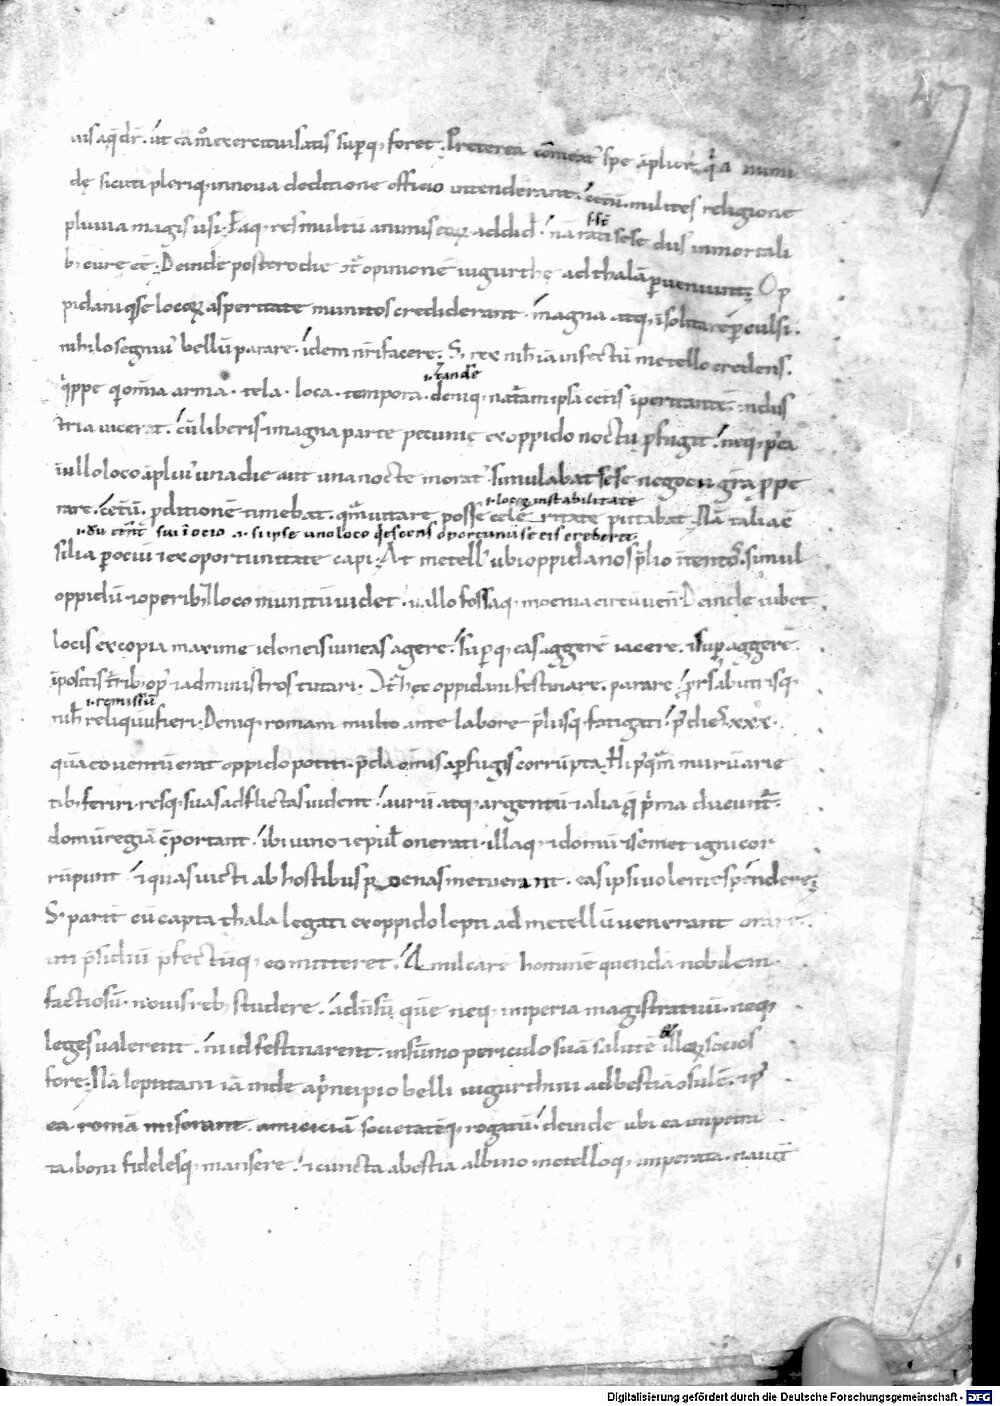 47
uis aq̄ dr̄. ut ea m̊ exercitui satis supq; foret. Preterea cōmeat' spe āplior; qa numi
dę sicuti pleriq; in noua deditione officio intenderant. Cet̄u. milites religione
pluuia magis usi. Eaq; res multū animis eoꝝ addid̄. nā rati sese dis inmortali
b; cure eē. Deinde postero die c̄t opinionē iugurthę ad thalā pueniunt. Op
pidani q̄ se locoꝝ asperitate munitos crediderant. magna atq; īsolita re pculsi.
nihilo segni' bellū parare. idem nr̄i facere. S; rex nih̄ iā infectū metello credens.
.i. tande
q̄ppe q̄ omnia arma. tela. loca. tempora. deniq; nat̄am ipsā cet̄is īperitante. indus
tria uicerat. cū liberis. & magna parte pecunie ex oppido noctu pfugit. neq; p'ea
ī ullo loco āpli' una die aut una nocte morat' simulabat sese negocii gr̄a ppe
.i. locoꝝ instabilitate
rare. Cet̄u. pditionē timebat. quā uitare posse celeritate putabat. Nā talia cō
silia p ociū & ex oportunitate capi. At metell' ubi oppidanos plio intentos. simul
oppidū & operib; & loco munitū uidet. uallo fossaq; moenia circūuen̄. Deinde iubet
locis ex copia maxime idoneis uineas agere. supq; eas aggerē iacere. & sup aggerē
īpositis t̄rib; op' & administros tutari. Ct̄ hęc oppidani festinare. parare. prs ab utrisq;
.i. remissū
nih̄ reliquū fieri. Deniq; romani multo ante labore pliisq; fatigati. p' dies xxxx.
quā eo uentū erat oppido potiti. pda omīs a pfugis corrupta. Hi pquā murū arie
tib; feriri. resq; suas adflictas uident. aurū atq; argentū & alia q̄ pma ducunt̄.
domū regiā cportant. ibi uino & epul' onerati. illaq; & domū & semet igni cor
rūpunt. & quas uicti ab hostibus poenas metuerant. eas ipsi uolentes pendere.
S; parit̄ cū capta thala legati ex oppido lepti ad metellū uenerant orant.
uti psidiū pfectūq; eo mitteret. Amilcare hominē quendā nobilem.
factiosū. nouis reb; studere. aduersū quē neq; imperia magistratuū. neq;
leges ualerent. ni id festinarent. in sūmo periculo suā salutē illoꝝ socios
fore. Nā leptitani iā inde a pncipio belli iugurthini ad bestiā c̄sulē. & p'
ea romā miserant. amiciciā societatēq; rogatū. deinde ubi ea impetra
ta. boni fidelesq; mansere. & cuncta a bestia albino. metelloq; imperata. nauit̄
Digitalisierung gefördert durch die Deutsche Forschungsgemeinschaft - DFG